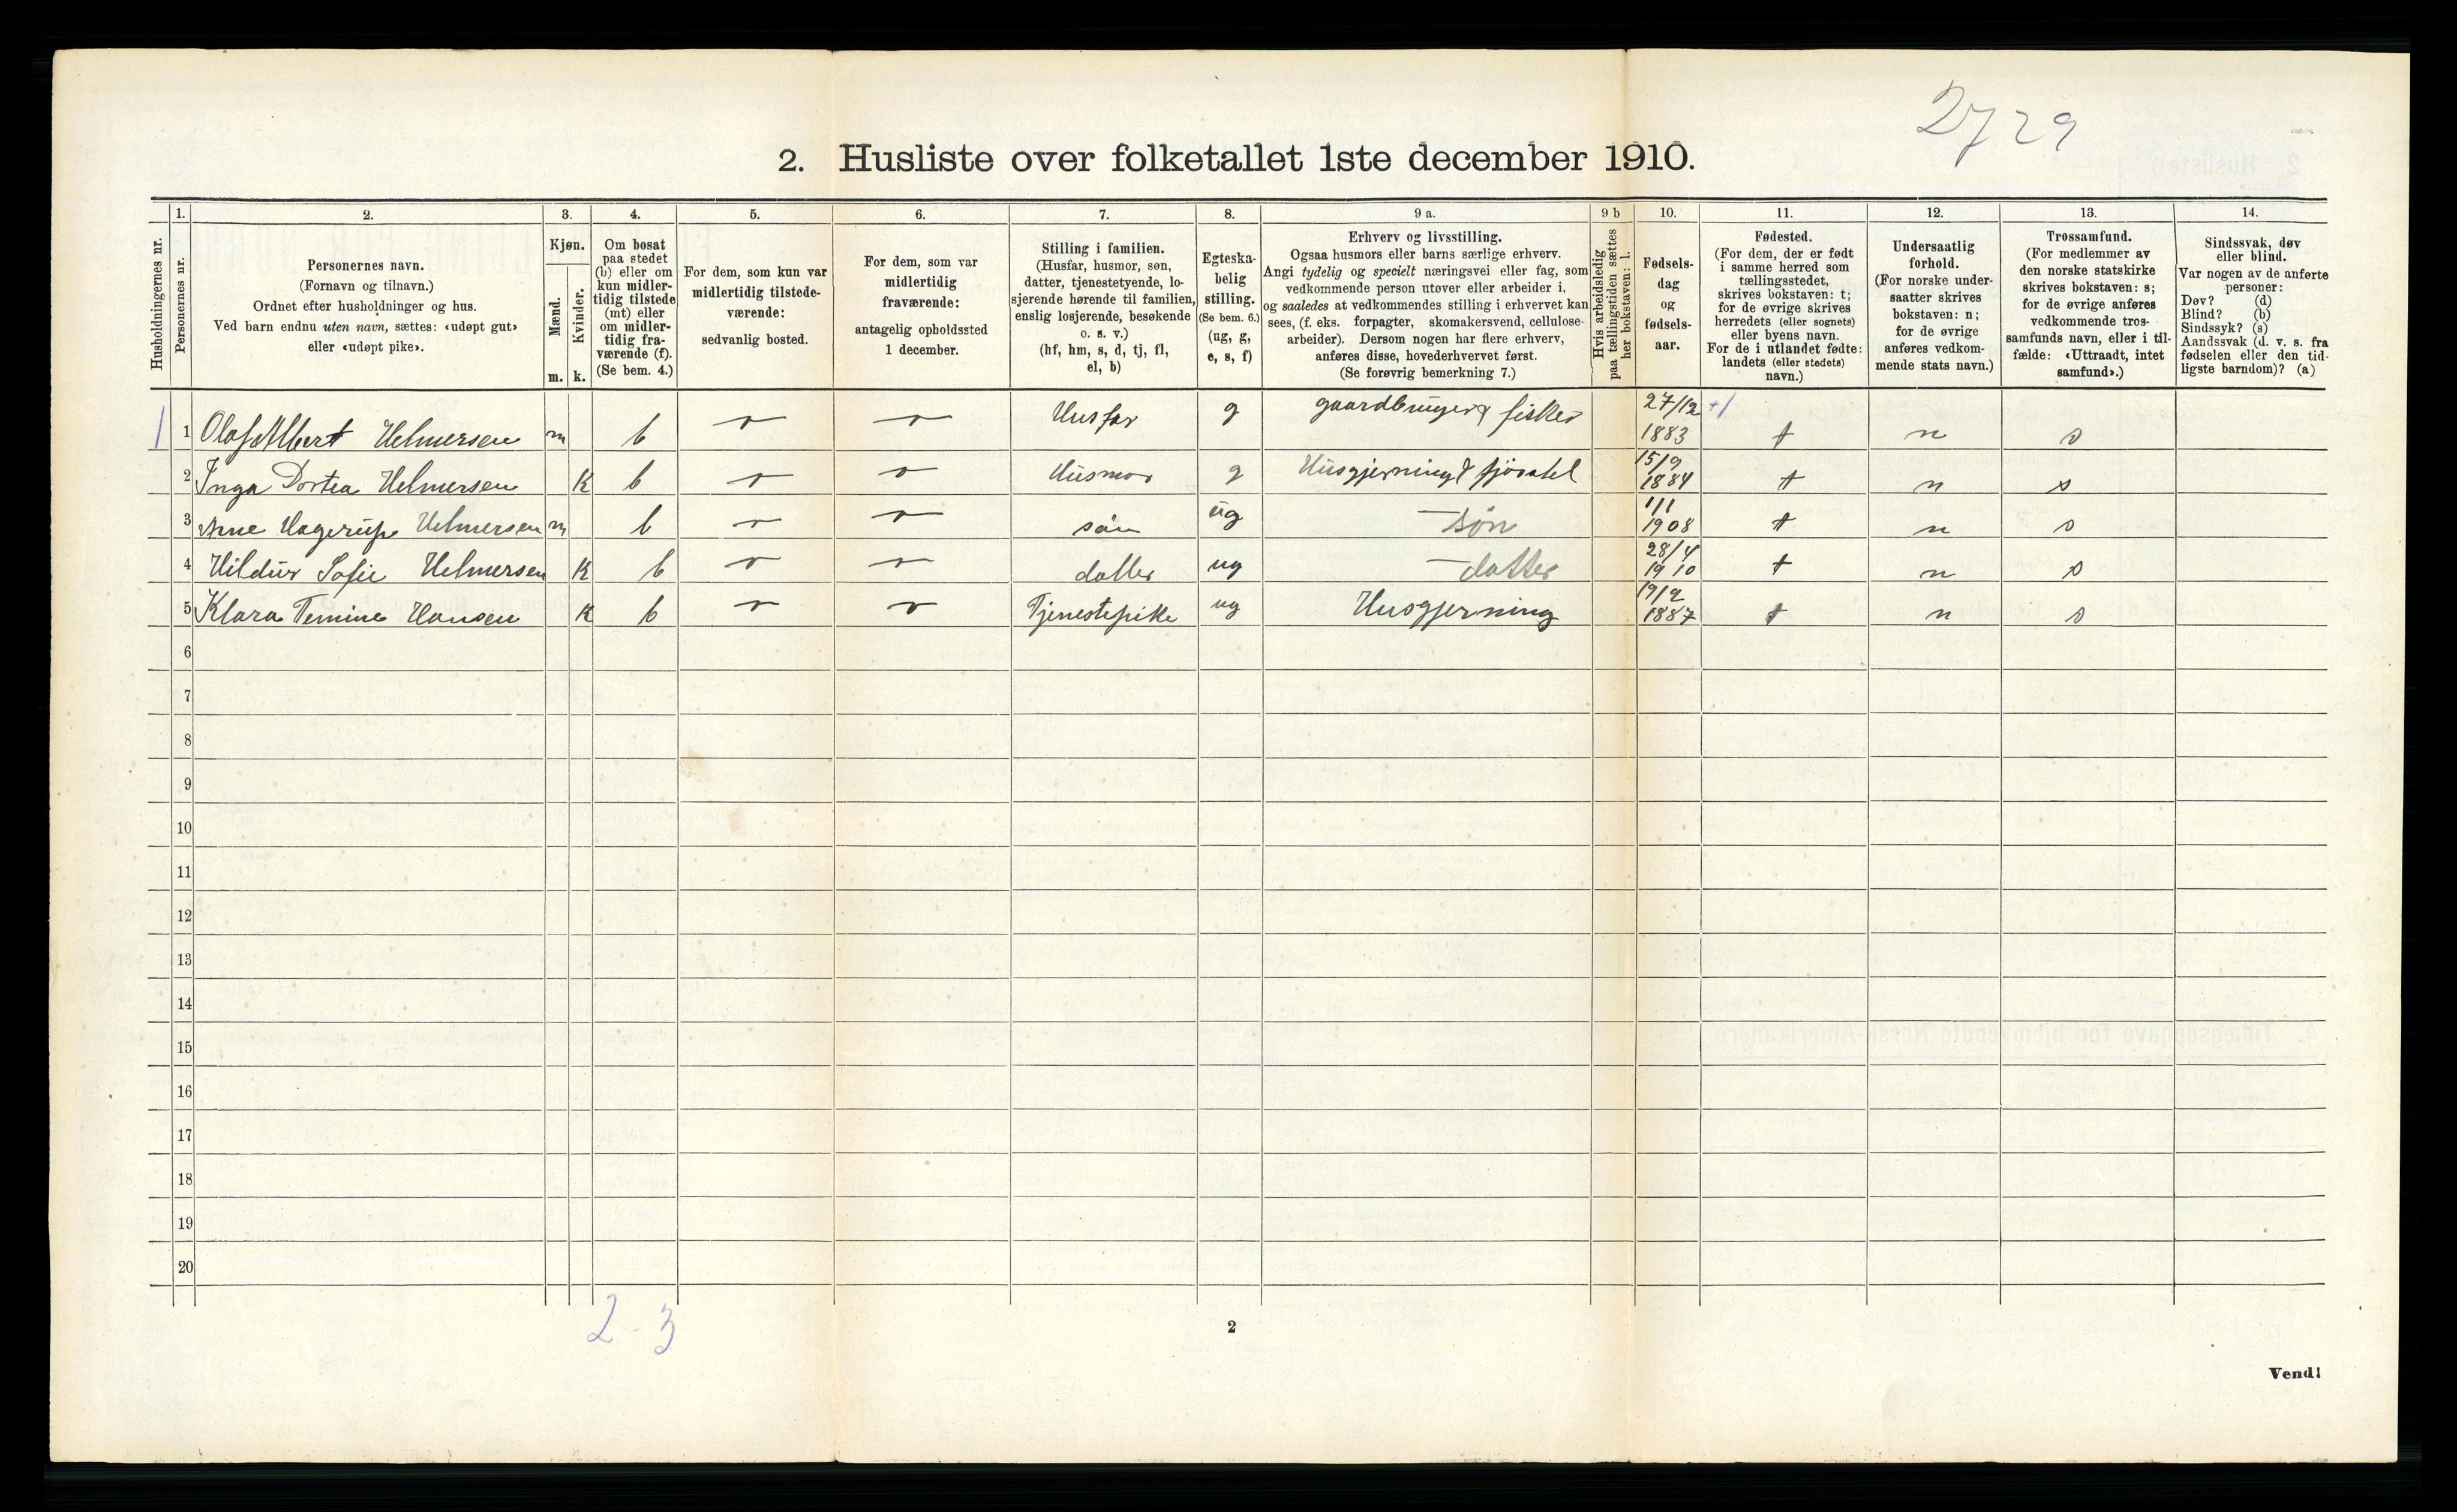 2729
2. Husliste over folketallet 1ste december 1910.
Husholdningernes nr.
1. Personernes nr.
2. Personernes navn.
(Fornavn og tilnavn.)
Ordnet efter husholdninger og hus.
Ved barn endnu uten navn, sættes: «udøpt gut»
eller «udøpt pike».
3. Kjøn.
Mænd. m.
Kvinder. k.
4. Om bosat
paa stedet
(b) eller om
kun midler-
tidig tilstede
(mt) eller
om midler-
tidig fra-
værende (f).
(Se bem. 4.)
5. For dem, som kun var
midlertidig tilstede-
værende:
sedvanlig bosted.
6. For dem, som var
midlertidig
fraværende:
antagelig opholdssted
1 december.
7. Stilling i familien.
(Husfar, husmor, søn,
datter, tjenestetyende, lo-
sjerende hørende til familien,
enslig losjerende, besøkende
o. s. v.)
(hf, hm, s, d, tj, fl,
el, b)
8. Egteska-
belig
stilling.
(Se bem. 6.)
(ug, g,
e, s, f)
9 a. Erhverv og livsstilling.
Ogsaa husmors eller barns særlige erhverv.
Angi tydelig og specielt næringsvei eller fag, som
vedkommende person utøver eller arbeider i,
og saaledes at vedkommendes stilling i erhvervet kan
sees, (f. eks. forpagter, skomakersvend, cellulose-
arbeider). Dersom nogen har flere erhverv,
anføres disse, hovederhvervet først.
(Se forøvrig bemerkning 7.)
9 b Hvis arbeidsledig
paa tællingstiden sættes
her bokstaven: l.
10. Fødsels-
dag
og
fødsels-
aar.
11. Fødested.
(For dem, der er født
i samme herred som
tællingsstedet,
skrives bokstaven: t;
for de øvrige skrives
herredets (eller sognets)
eller byens navn.
For de i utlandet fødte:
landets (eller stedets)
navn.)
12. Undersaatlig
forhold.
(For norske under-
saatter skrives
bokstaven: n;
for de øvrige
anføres vedkom-
mende stats navn.)
13. Trossamfund.
(For medlemmer av
den norske statskirke
skrives bokstaven: s;
for de øvrige anføres
vedkommende tros-
samfunds navn, eller i til-
fælde: «Uttraadt, intet
samfund».)
14. Sindssvak, døv
eller blind.
Var nogen av de anførte
personer:
Døv? (d)
Blind? (b)
Sindssyk? (s)
Aandssvak (d. v. s. fra
fødselen eller den tid-
ligste barndom)? (a)
1 1 Olaf Albert Helmersen m b Husfar g gaardbruger & fisker 27/12 1883 t n s
2 Inga Dortea Helmersen K b Husmor g Husgjerning & fjösstel 15/9 1884 t n s
3 Arne Hagerup Helmersen m b sön ug søn 1/1 1908 t n s
4 Hildur Sofie Helmersen K b datter ug datter 28/4 1910 t n s
5 Klara Hansen K b Tjenestepike ug Husgjerning 19/2 1887 t n s
6
7
8
9
10
11
12
13
14
15
16
17
18
19
20
2-3
2
Vend!